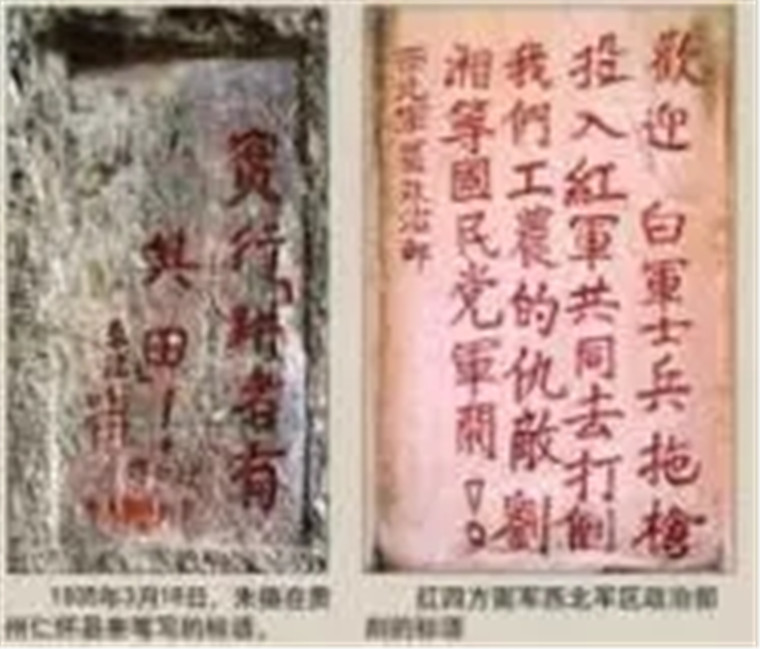 實行耕者有
其田！
歡迎 白軍士兵拖槍
投入紅軍共同去打倒
我們工農的仇敵劉
湘等國民党軍閥
西北軍區政治部
1935年3月16日，朱德在贵
州仁怀县亲笔写的标语。
红四方面军西北军区政治部
刻的标语